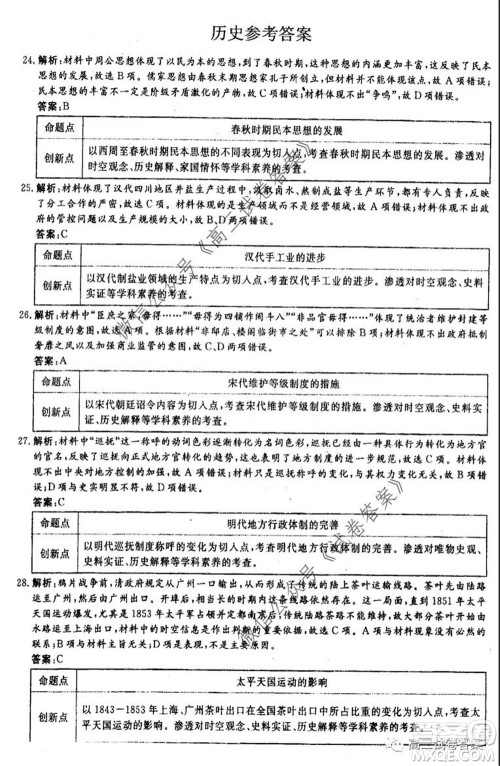 历史参考答案
24. 解析:材料中周公思想体现了以民为本的思想,到了春秋时期,这种思想的内涵更加丰富,这反映了民本
思想的发展,故选 B 项。儒家思想由春秋末期思想家孔子所创立,但材料并不是儒家思想,故 A 项错误;
民本思想的丰富不一定是阶级矛盾激化的产物,故 C 项错误;材料并未突出“争鸣”,故 D 项错误。
答案:B
命题点 春秋时期民本思想的发展
创新点 以西周至春秋时期民本思想的不同表现为切入点,考查春秋时期民本思想的发展。渗透对
时空观念、历史解释、家国情怀等学科素养的考查。
25. 解析:材料体现了汉代四川地区井盐生产过程中,汲取卤水、熬制成盐等生产环节,各有专人负责,反映
了分工合作的严密,故选 C 项。材料体现的是生产领域而不是经营领域,故 A 项错误;材料未体现出政
府的管控问题以及生产规模的大小,故 B、D 两项错误。
答案:C
命题点 汉代手工业的进步
创新点 以汉代制盐业领域的生产特点为切入点,考查汉代手工业的进步。渗透对时空观念、史料
实证等学科素养的考查。
26. 解析:材料中“臣庶之家,毋得……”“毋得为四铺作闹斗八”“非品官毋得……”体现了统治者维护封建等
级制度的意图,故选 A 项。根据材料“非邸店、楼阁临街市之处”可以排除 B 项;材料不体现出政府抵制
奢靡之风以及加强城市建设的意图,故 C、D 两项错误。
答案:A
命题点 宋代维护等级制度的措施
创新点 以宋代朝廷诏令内容为切入点,考查宋代维护等级制度的措施。渗透对时空观念、史料实
证、历史解释等学科素养的考查。
27. 解析:材料中“巡抚”这一称呼的动词色彩逐渐转化为名词色彩,巡抚由具体的行为行动转化为地方官的
官名,反映了巡抚向正式地方官转化的趋势,这也表明了地方制度的进一步规范,故选 C 项。材料体现
不出中央对地方控制的加强,故 A 项错误;材料体现的是巡抚称呼的变化,与其权力变化无关,故 B 项错
误;D 项与史实明显不符,故 D 项错误。
答案:C
命题点 明代地方行政体制的完善
创新点 以明代巡抚制度称呼的变化为切入点,考查明代地方行政体制的完善。渗透对唯物史观、
史料实证、历史解释等学科素养的考查。
28. 解析:鸦片战争前,清政府规定从广州一口输出,从而形成了传统的陆上茶叶运输线路。茶叶先由陆路
运至广州,然后再出口海外。战后,上海出口贸易有所发展,但尚未超过广州。但到 1851 年太平天国运
动爆发后,尤其是 1853 年太平军占领并定都南京后,传统陆路茶路不复存在,由此茶叶贸易开始由
水路运至上海出口。材料中的时空信息是作出判断的重要依据,故选 C 项。A 项与材料现象没有必然
联系;B、D 两项错误。
答案:C
命题点 太平天国运动的影响
创新点 以 1843-1853 年上海、广州茶叶出口在全国茶叶出口中所占比重的变化为切入点,考查太
平天国运动的影响。渗透对时空观念、历史解释等学科素养的考查。
微信公众号《高三试卷答案》
微信公众号《试卷答案》
高三试卷答案